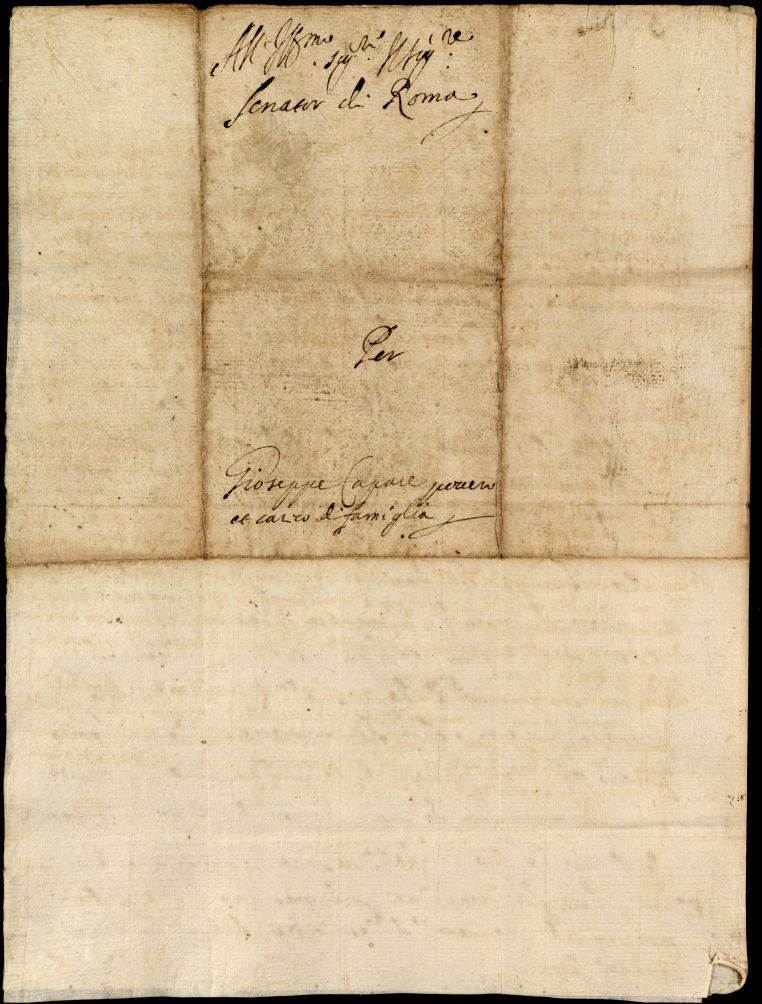 All' Ill.mo Sig.re
Senator di Roma
Per
Gioseppe Capare povero
et carico di famiglia